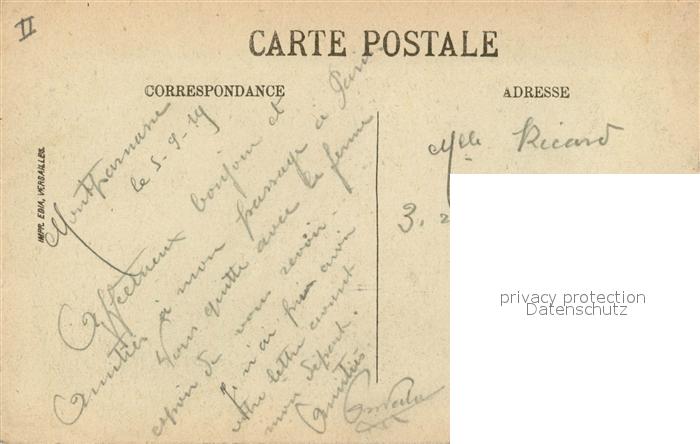 II
CARTE POSTALE
CORRESPONDANCE
ADRESSE
IMPR. EDIA, VERSAILLES.
Montparnasse
le 5-9-19
Affectueux bonjour et
Amitiés à mon passage à Paris
Vous quitte avec le ferme
espoir de vous revoir.
Je n'ai pu avoir
votre lettre avant
mon départ.
Amitiés.
Mlle Ricard
3. 2
privacy protection
Datenschutz